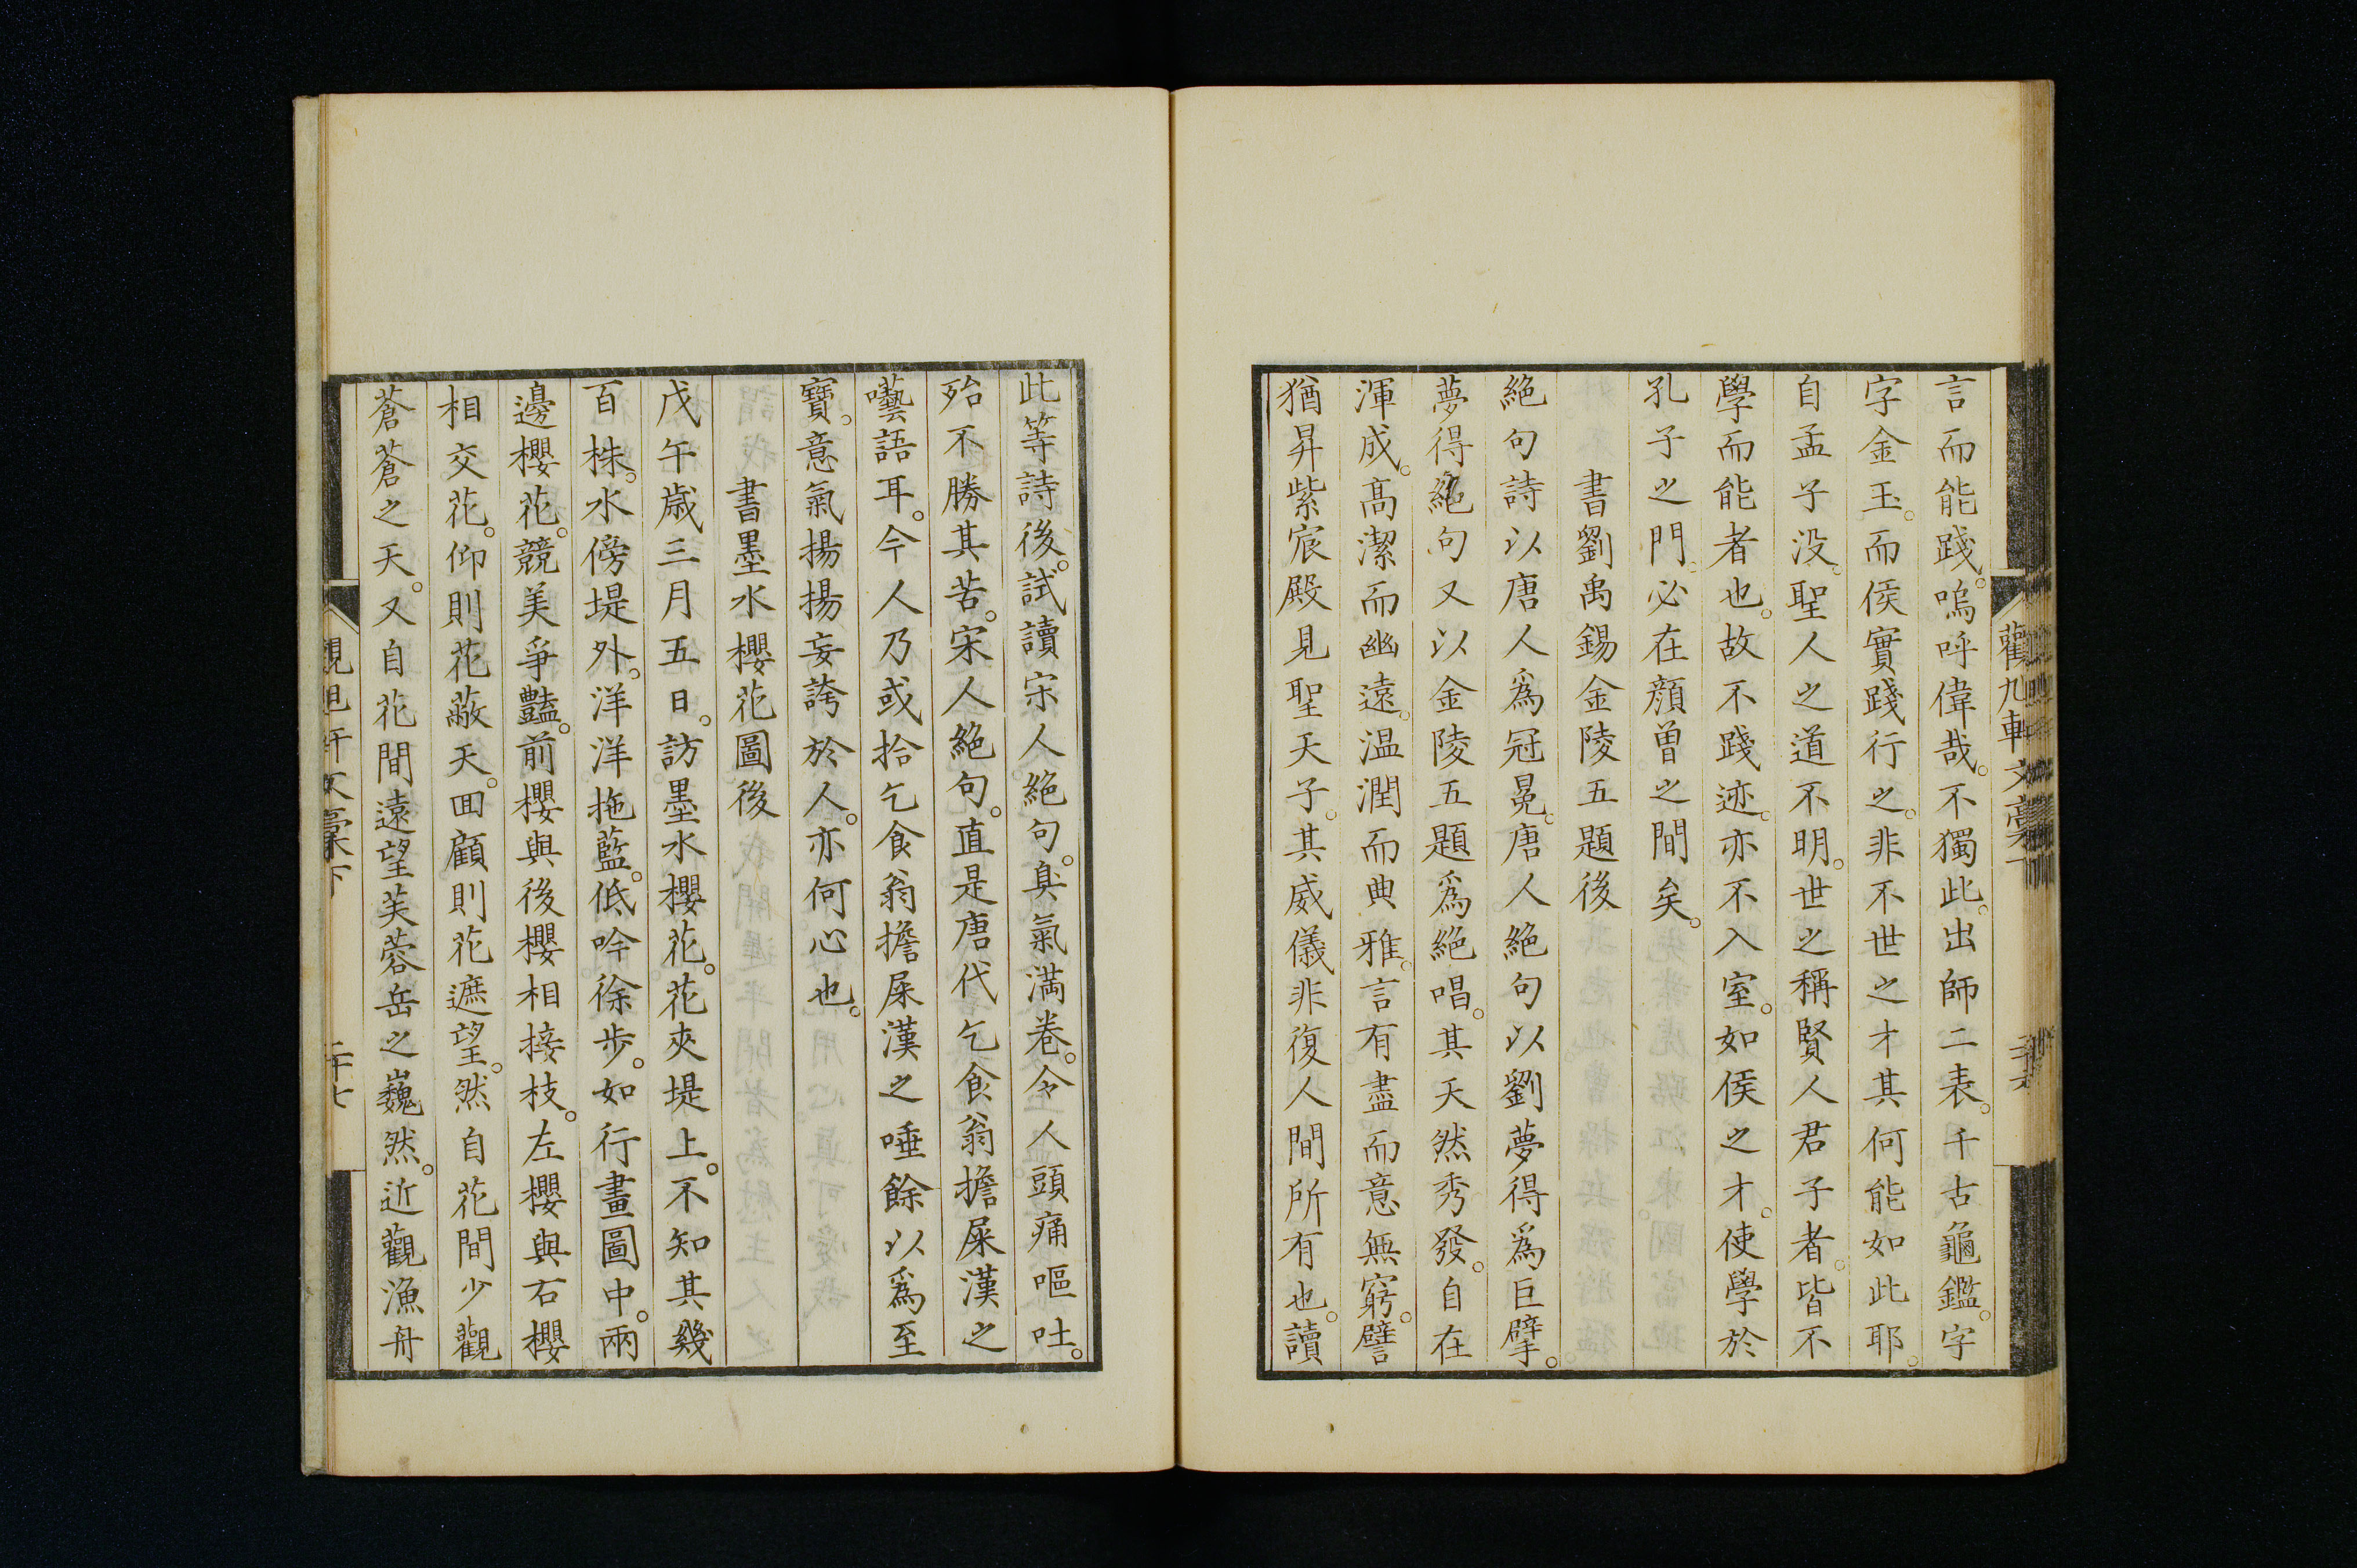 言而能踐。嗚呼偉哉。不獨此。出師二表。千古龜鑑。字
字金玉。而侯實踐行之。非不世之才其何能如此耶。
自孟子没。聖人之道不明。世之稱賢人君子者。皆不
學而能者也。故不踐迹。亦不入室。如侯之才。使學於
孔子之門。必在顔曽之間矣。
書劉禹錫金陵五題後
絶句詩以唐人爲冠冕。唐人絶句以劉夢得爲巨擘。
夢得絶句又以金陵五題爲絶唱。其天然秀發。自在
渾成。高潔而幽遠。温潤而典雅。言有盡而意無窮。譬
猶昇紫宸殿見聖天子。其威儀非復人間所有也。讀
此等詩後。試讀宋人絶句。臭氣満巻。令人頭痛嘔吐。
殆不勝其苦。宋人絶句。直是唐代乞食翁擔屎漢之
囈語耳。今人乃或拾乞食翁擔屎漢之唾餘以爲至
寶。意氣揚揚妄誇於人。亦何心也。
書墨水櫻花圖後
戊午歳三月五日。訪墨水櫻花。花夾堤上。不知其幾
百株。水傍堤外。洋洋拖藍。低吟徐歩。如行畫圖中。兩
邊櫻花。競美爭豔。前櫻與後櫻相接枝。左櫻與右櫻
相交花。仰則花蔽天。囬顧則花遮望。然自花間少觀
蒼蒼之天。又自花間遠望芙蓉岳之巍然。近觀漁舟